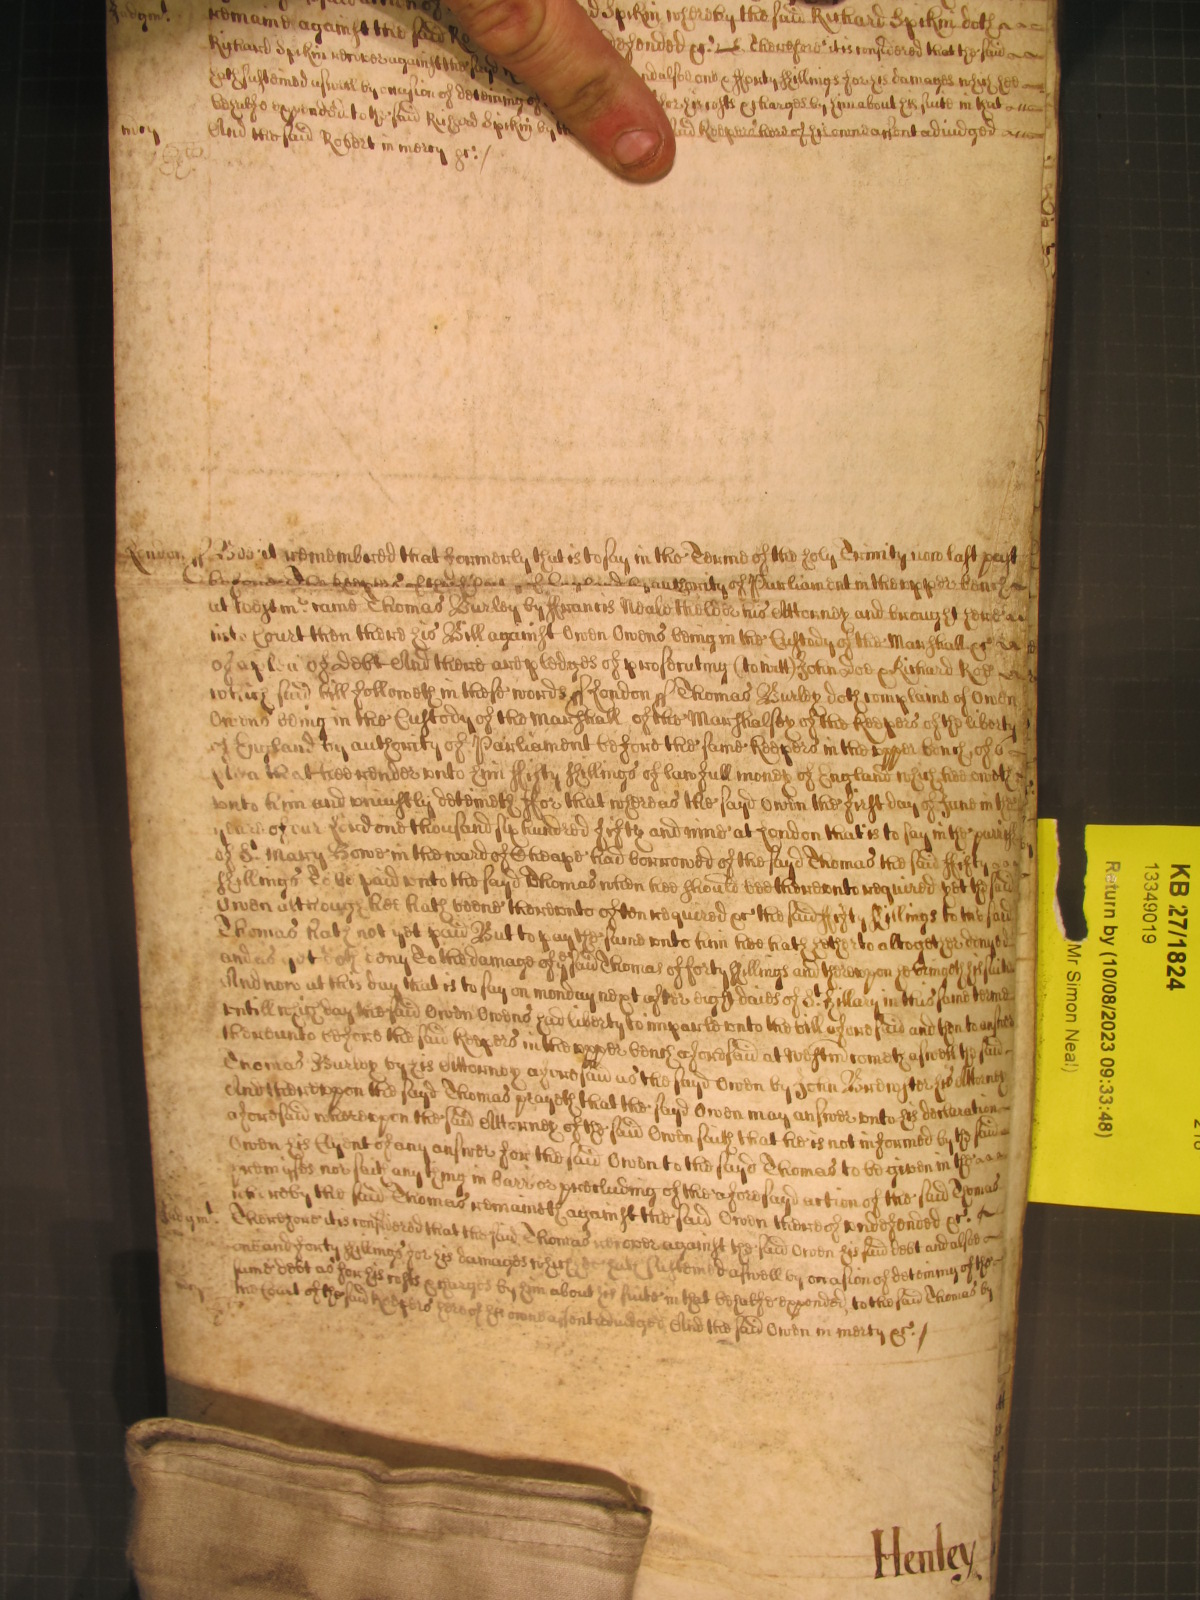 Judgmt.
remaine against the said Ro d Spikin whereby the said Richard Spikin doth
defended &c. Therefore it is considered that the said
Richard Spikin recover against the said and alsoe one & fforty shillings for his damages which hee
hath susteined aswell by occasion of deteining of for his costs & charges by him about his suite in that
behalfe expended to the said Richard Spikin by the said Keepers here of his owne assent adjudged
mcy And the said Robert in mercy &c. /
London ss Bee it remembred that formerly that is to say in the Terme of the holy Trinity now last past
before authority of Parliament in the upper bench
at Westmr. came Thomas Burley by Francis Neale the elder his Attorney and brought here
into Court then there his Bill against Owen Owens being in the Custody of the Marshall &c.
of a plea of debt And there are pledges of prosecuting (to witt) John Doe & Richard Roe
which said bill followeth in these words ss London ss Thomas Burley doth complaine of Owen
Owens being in the Custody of the Marshall of the Marshalsey of the Keepers of the liberty
of England by authority of Parliament before the same Keepers in the upper bench of a
plea that hee render unto him fifty shillings of lawfull money of England which hee oweth
unto him and uniustly deteineth ffor that whereas the sayd Owen the first day of June in the
yeare of our Lord one thousand six hundred fifty and nine at London that is to say in the parish
of St. Mary Bowe in the ward of Cheape had borrowed of the sayd Thomas the said fifty
shillings To be paid unto the sayd Thomas when hee should bee thereunto required yet the said
Owen although hee hath beene thereunto often required &c. the said fifty shillings to the said
Thomas hath not yet paid But to pay the same unto him hee hath hitherto altogether denyed
and as yet doth deny To the damage of ye said Thomas of forty shillings and thereupon he bringeth his suite
And now at this day that is to say on monday next after eight daies of St. Hillary in this same terme
untill which day the said Owen Owens had liberty to imparle unto the bill aforesaid and then to answer
thereunto before the said Keepers in the upper bench aforesaid at Westmr. cometh aswell the said
Thomas Burley by his Attorney aforesaid as the sayd Owen by John Brewster his Attorney
And thereupon the sayd Thomas prayeth that the sayd Owen may answer unto his declaration
aforesaid whereupon the said Attorney of the said Owen saith that he is not informed by the said
Owen his Clyent of any answer for the said Owen to the sayd Thomas to be given in the
premisses nor saith any thing in barr or precluding of the aforesayd action of the said Thomas
whereby the said Thomas remaineth against the said Owen thereof undefended &c.
Judgmt. Therefore it is considered that the said Thomas recover against the said Owen his said debt and alsoe
one and forty shillings for his damages which he hath susteined aswell by occasion of deteining of the
same debt as for his costs & charges by him about his suite in that behalfe expended, to the said Thomas by
mcy the Court of the said Keepers here of his owne assent adiudged And the said Owen in mercy &c. /
Henley
KB 27/1824
13349019
Return by (10/08/2023 09:33:48)
Mr Simon Neal)